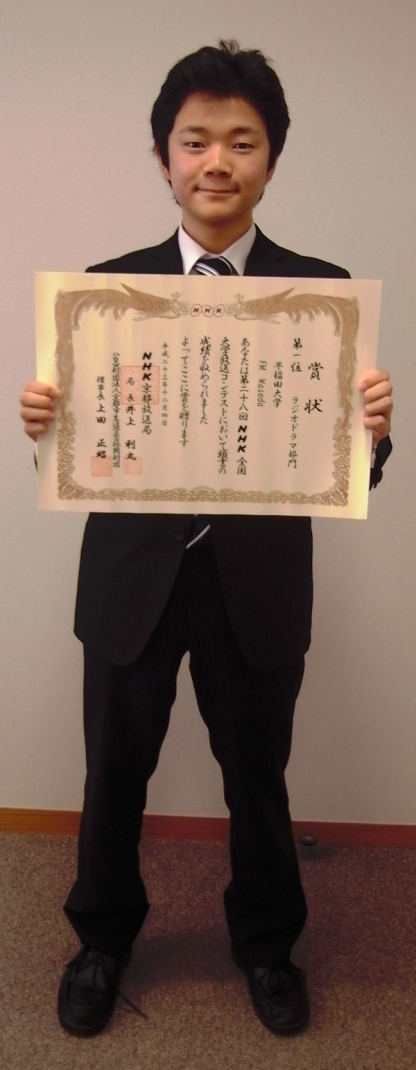 NHK
賞状
第一位 ラジオドラマ部門
早稲田大学
FM Waseda
あなたは第二十八回NHK全国
大学放送コンテストにおいて頭書の
成績を収められました
よってここに賞を贈ります
平成二十三年十二月四日
NHK京都放送局
局長 井上 利丸
理事長 上田 正昭